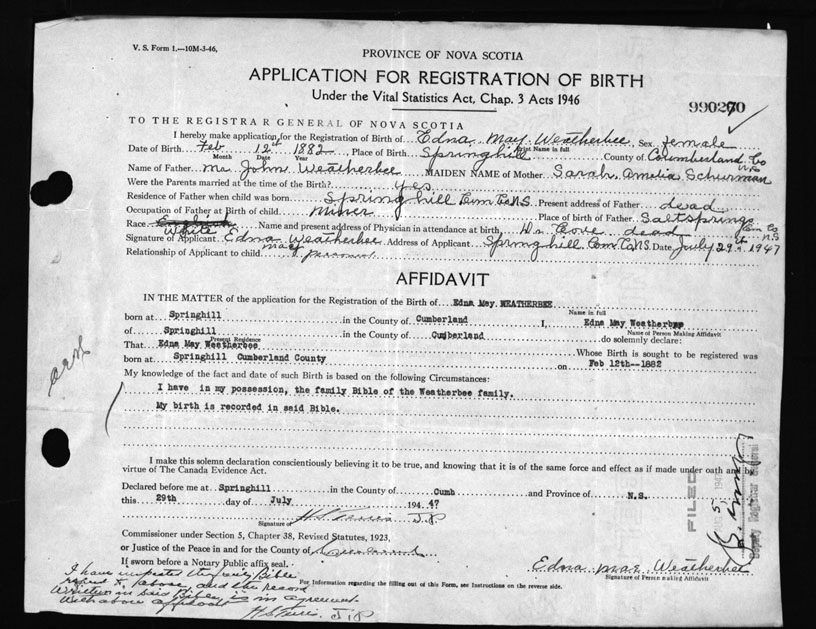 V. S. Form 1.—10M-3-46.
PROVINCE OF NOVA SCOTIA
APPLICATION FOR REGISTRATION OF BIRTH
Under the Vital Statistics Act, Chap. 3 Acts 1946
TO THE REGISTRAR GENERAL OF NOVA SCOTIA
I hereby make application for the Registration of Birth of Edna May Weatherbee, Sex female
Print Name in full
Date of Birth Feb 12th 1882, Place of Birth Springhill County of Cumberland Co N.S.
Month Date Year
Name of Father Mr John Weatherbee MAIDEN NAME of Mother Sarah Amelia Schurman
Were the Parents married at the time of Birth? Yes
Residence of Father when child was born Springhill Cum Co N.S. Present address of Father dead
Occupation of Father at Birth of child Miner Place of birth of Father Saltsprings Cum Co N.S.
Race White Name and present address of Physician in attendance at birth, Dr Cove dead
Signature of Applicant Edna May Weatherbee Address of Applicant Springhill Cum Co N.S. Date July 29th 1947
Relationship of Applicant to child
AFFIDAVIT
IN THE MATTER of the application for the Registration of the Birth of Edna May. WEATHERBEE
Name in full
born at Springhill in the County of Cumberland I, Edna May Weatherbee
Name of Person Making Affidavit
of Springhill in the County of Cumberland do solemnly declare:
Present Residence
That Edna May Weatherbee Whose Birth is sought to be registered was
born at Springhill Cumberland County on Feb 12th--1882
My knowledge of the fact and date of such Birth is based on the following Circumstances:
I have in my possession, the family Bible of the Weatherbee family.
My birth is recorded in said Bible.
I make this solemn declaration conscientiously believing it to be true, and knowing that it is of the same force and effect as if made under oath and by
virtue of The Canada Evidence Act.
Declared before me at Springhill in the County of Cumb and Province of N.S.
this 29th day of July 1947
J.P.
Signature of
Commissioner under Section 5, Chapter 38, Revised Statutes, 1923,
or Justice of the Peace in and for the County of
If sworn before a Notary Public affix seal.
Edna May Weatherbee
Signature of Person making Affidavit
For Information regarding the filling out of this Form, see Instructions on the reverse side.
I have inspected the family Bible
referred to above and the record
written in said Bible, is in agreement
with above affidavit
J.P.
FILED
Deputy Registrar General